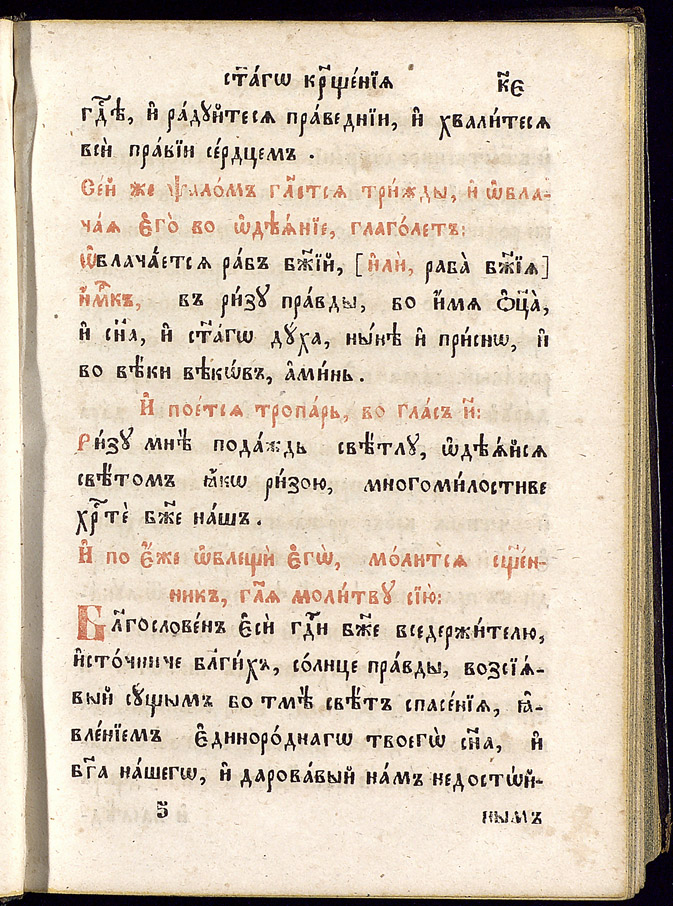 ст҃а́гѡ кр҃ще́нїѧ к҃є
гдⷭ҇ѣ, и҆ ра́дꙋйтесѧ пра́веднїи, и҆ хвали́тесѧ
всѝ пра́вїи се́рдцемъ.
Се́й же ѱало́мъ гл҃етсѧ три́жды, и҆ ѡ҆бла-
ча́ѧ є҆го̀ во ѡ҆дѣѧ́нїе, глаго́летъ:
Ѡ҆блача́етсѧ ра́бъ бж҃їй, [и҆лѝ, раба̀ бж҃їѧ]
и҆мⷬ҇къ, въ ри́зꙋ пра́вды, во и҆́мѧ ѻ҆ц҃а̀,
и҆ сн҃а, и҆ ст҃а́гѡ дꙋ́ха, ны́нѣ и҆ при́снѡ, и҆
во вѣ́ки вѣкѡ́въ, а҆ми́нь.
И҆ пое́тсѧ тропа́рь, во гла́съ и҃:
Ри́зꙋ мнѣ̀ пода́ждь свѣ́тлꙋ, ѡ҆дѣѧ́йсѧ
свѣ́томъ ꙗ҆́кѡ ри́зою, многоми́лостиве
хрⷭ҇тѐ бж҃е на́шъ.
И҆ по є҆́же ѡ҆блещѝ є҆го̀, мо́литсѧ сщ҃е́н-
никъ, гл҃ѧ моли́твꙋ сїю̀:
Бл҃гослове́нъ є҆сѝ гдⷭ҇и бж҃е вседержи́телю,
и҆сто́чниче бл҃ги́хъ, со́лнце пра́вды, возсїѧ́-
вый сꙋ́щымъ во тмѣ̀ свѣ́тъ спасе́нїѧ, ꙗ҆-
вле́нїемъ є҆диноро́днагѡ твоегѡ̀ сн҃а, и҆
бг҃а на́шегѡ, и҆ дарова́вый на́мъ недостѡ́й-
5 нымъ